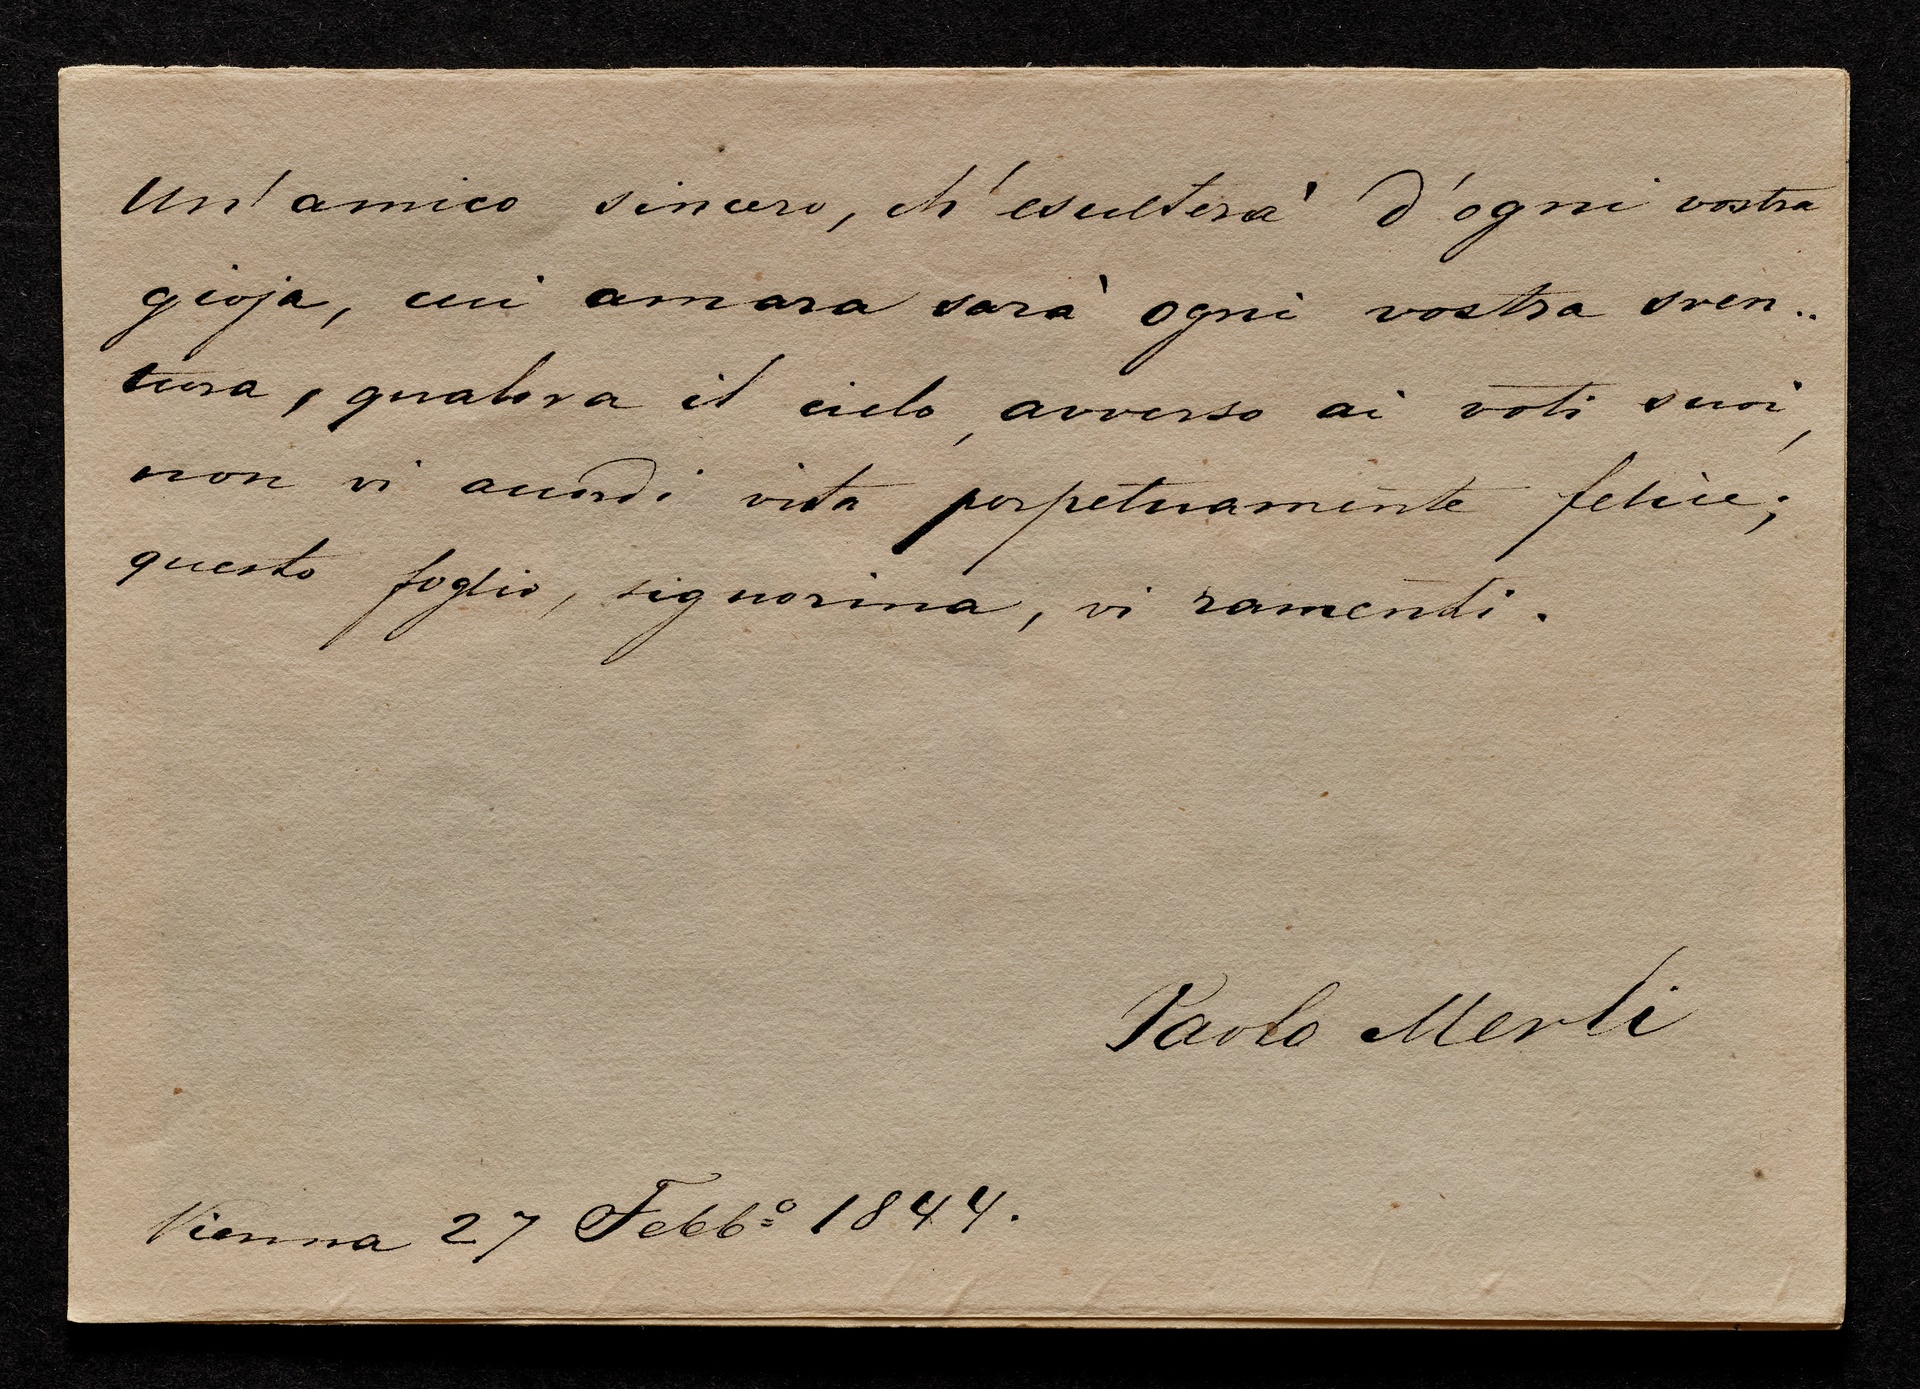 Un' amico sincero, ch' esulterà d'ogni vostra
gioja, cui amara sarà ogni vostra sven..
tura, qualora il cielo, avverso ai voti suoi,
non vi accordi vita perpetuamente felice;
questo foglio, signorina, vi ramenti.
Paolo Merli
Vienna 27 Febbº 1844.